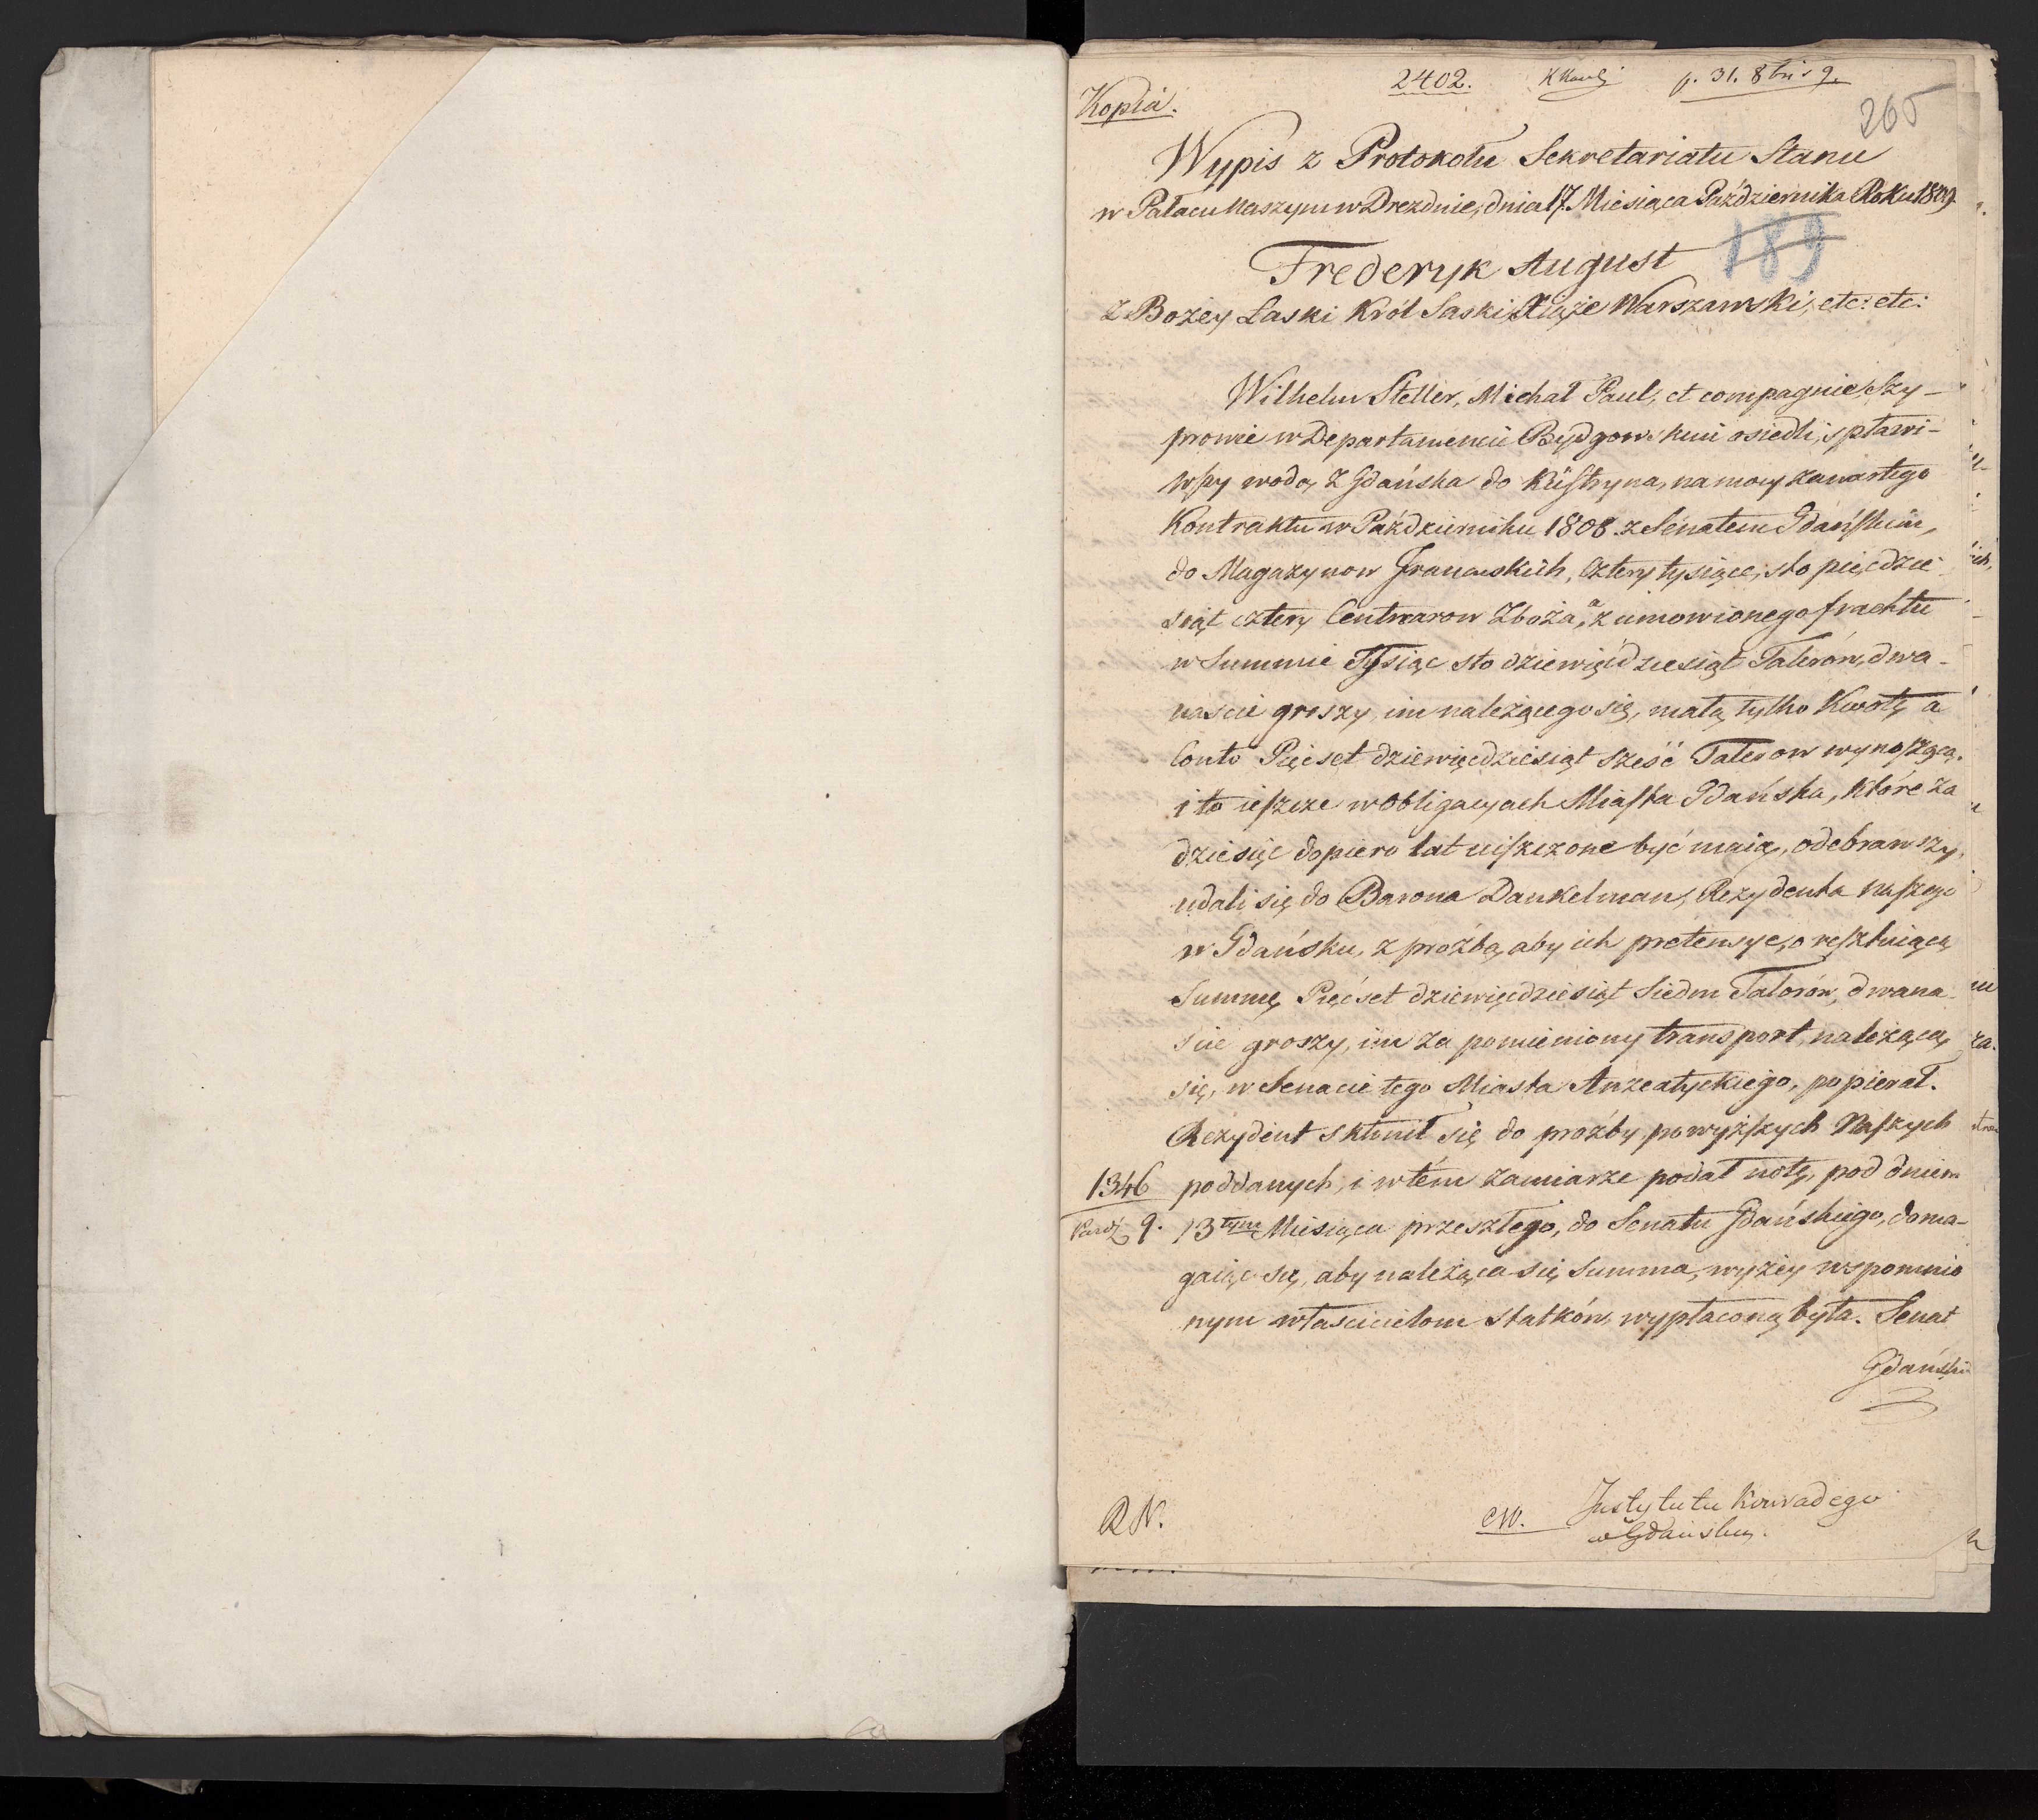 2402. p. 31. 8bris 9.
Kopia.
265
Wypis z Protokołu Sekretariatu Stanu
w Pałacu Naszym w Dreźnie, dnia 17. Miesiąca Października Roku 1809
189
Frederyk August
z Bożey Łaski Król Saski, Xiąże Warszawski, etc: etc:
Wilhelm Steller, Michał Paul, et compagnie, Szy-
prowie w Departamencie Bydgowskim osiedli, spławi-
wszy wodą z Gdańska do Küstryna, na mocy zawartego
Kontraktu w Październiku 1808. z Senatem Gdańskim,
do Magazynow Francuskich, cztery tysiące, sto pięcdzie-
siąt cztery Centnarow Zboża, a z umowionego frachtu
w Summie Tysiąc sto dziewięćdziesiąt Talerów, dwa-
naście groszy, im należącego się, małą tylko Kwotę a
Conto Pięćset dziewięcdziesiąt sześć Talerow wynoszącą,
i to ieszcze w Obligacyach Miasta Gdańska, które za
dziesięć dopiero lat uiszczone być maią, odebrawszy,
udali się do Barona Dankelman, Rezydenta naszego
w Gdańsku, z proźbą, aby ich pretensye, o resztuiącą
Summę Pięćset dziewięcdziesiąt siedm Talerów, dwana-
scie groszy, im za pomieniony transport, należącą
się, w Senacie tego Miasta Anzeatyckiego, popierał.
Rezydent skłonił się do proźby powyższych Naszych
1346 poddanych, i w tém zamiarze podał notę, pod dniem
Paźdź 9. 13tym Miesiąca przeszłego, do Senatu Gdańskiego, doma-
gaiąc się, aby należąca się Summa, wyżey wspomnio
nym właścicielom statków, wypłaconą była. Senat
Gdański
RN.
Instytutu Konradego
w Gdańsku.